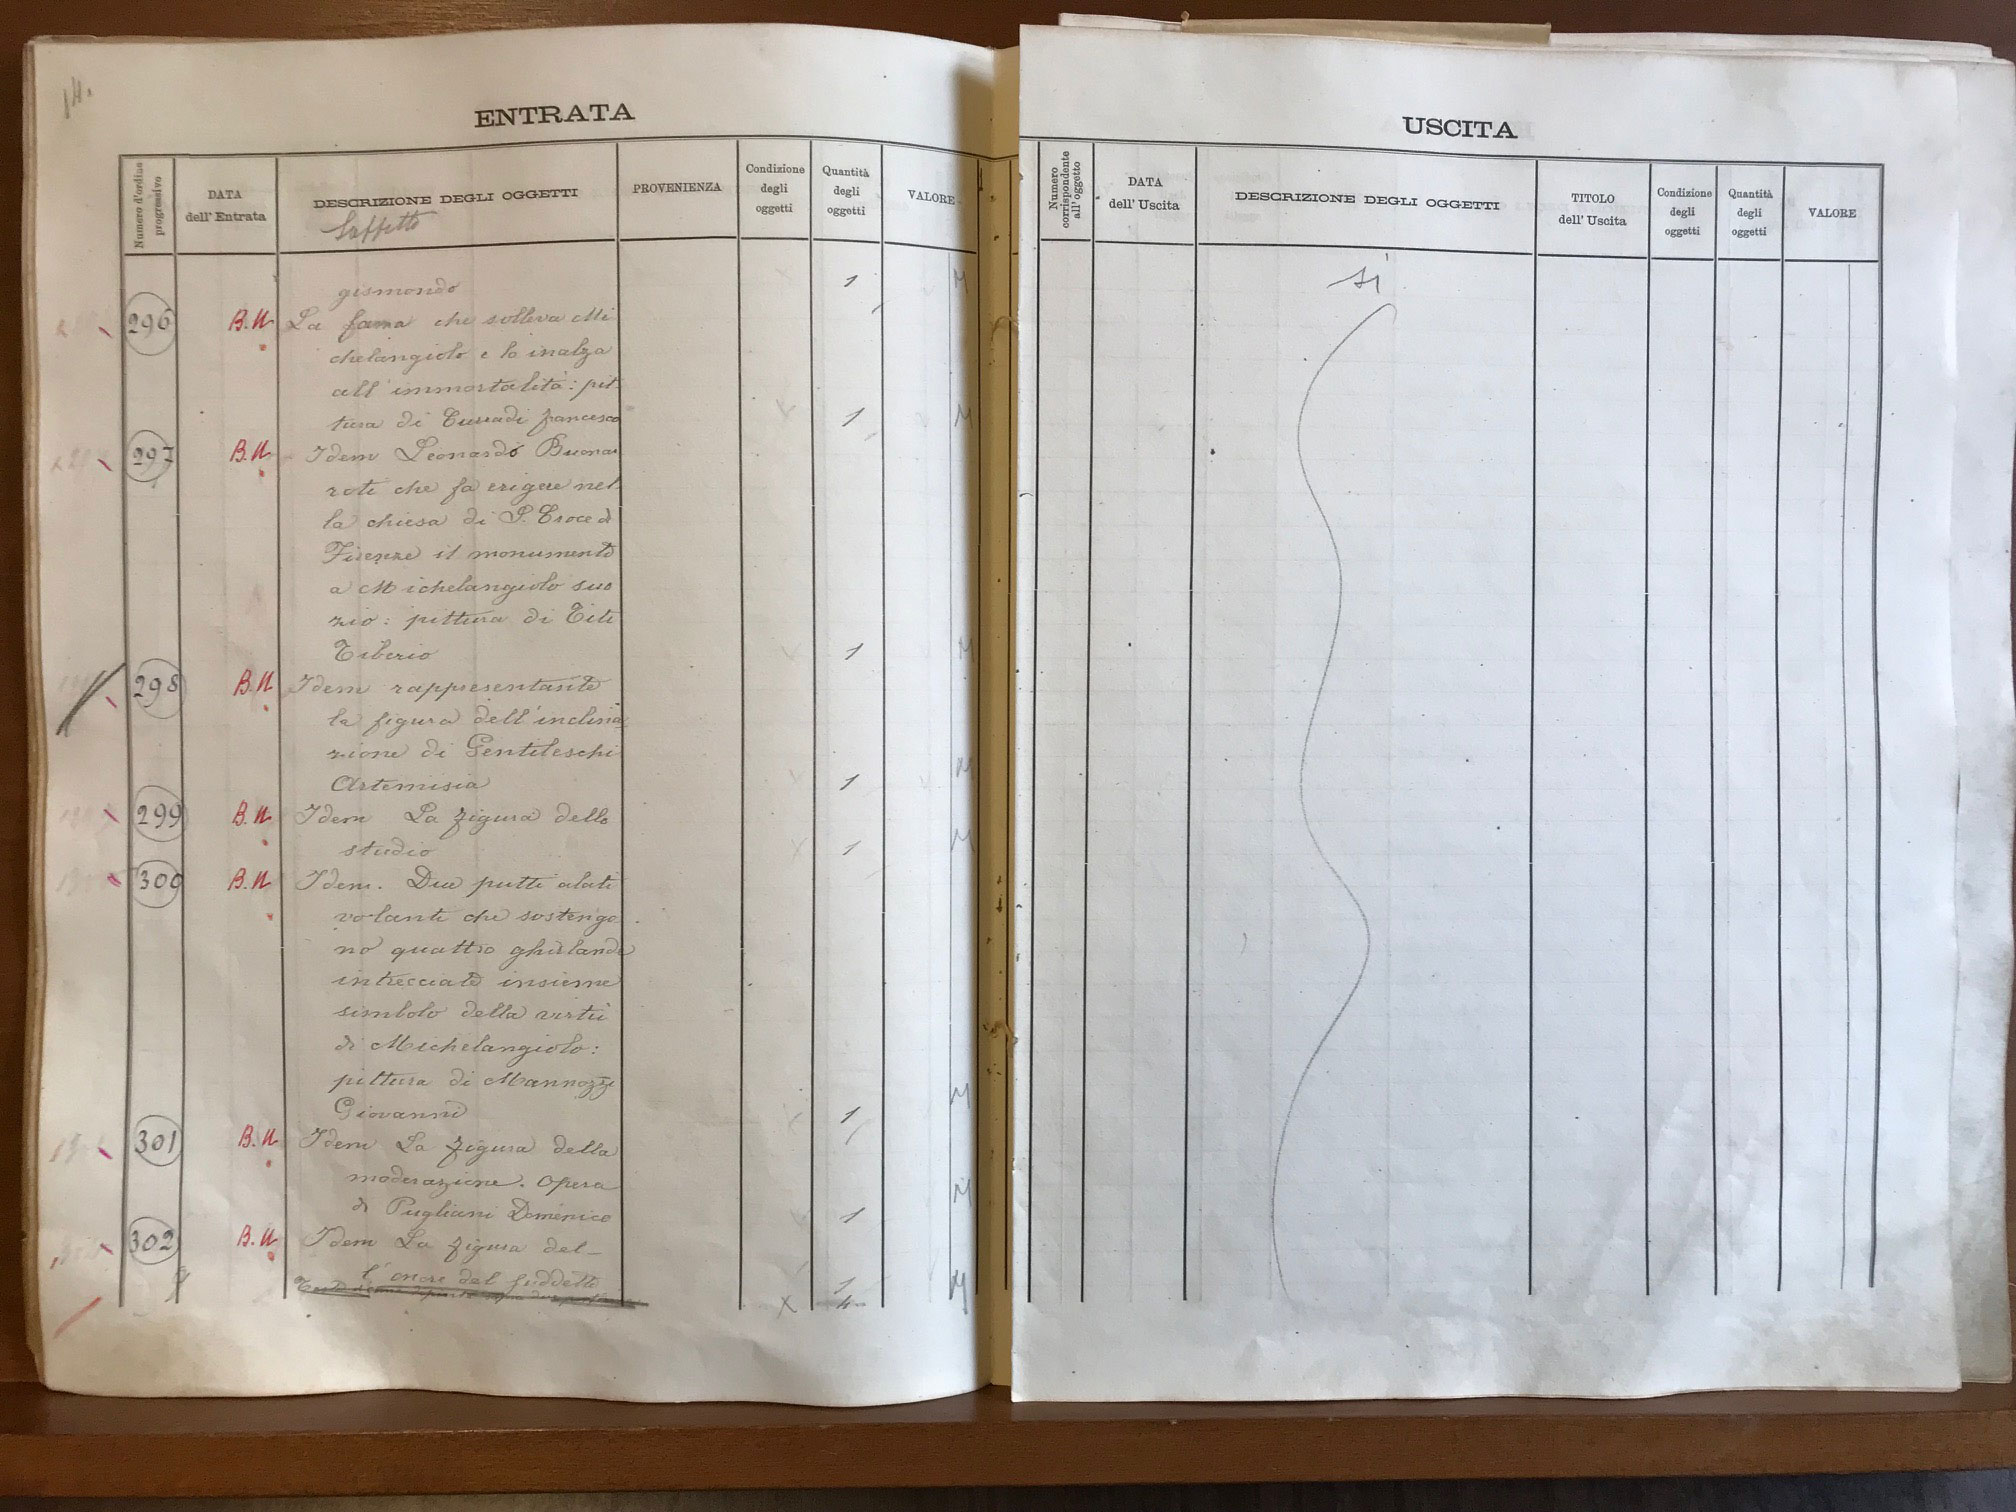 14.
ENTRATA
Numero d'ordine progressivo
DATA dell' Entrata
DESCRIZIONE DEGLI OGGETTI
Soffitto
PROVENIENZA
Condizione degli oggetti
Quantità degli oggetti
VALORE
gismondo 1 M
296 B.N. La fama che solleva Mi
chelangiolo e lo inalza
all'immortalità: pit-
tura di Curradi francesco 1 M
297 B.N. Idem Leonardo Buonar
roti che fa erigere nel
la chiesa di S. Croce di
Firenze il monumento
a Michelangiolo suo
zio: pittura di Titi
Tiberio 1 M
298 B.N. Idem rappresentante
la figura dell'inclina
zione di Gentileschi
Artemisia 1 M
299 B.N. Idem La figura dello
studio 1 M
300 B.N. Idem. Due putti alati
volanti che sostengo
no quattro ghirlande
intrecciate insieme
simbolo della virtù
di Michelangiolo:
pittura di Mannozzi
Giovanni 1 M
301 B.N. Idem La figura della
moderazione. Opera
di Pugliani Domenico 1 M
302 B.N. Idem La figura del-
l'onore del suddetto 1 M
X 4
USCITA
Numero corrispondente all' oggetto
DATA dell' Uscita
DESCRIZIONE DEGLI OGGETTI
TITOLO dell' Uscita
Condizione degli oggetti
Quantità degli oggetti
VALORE
si